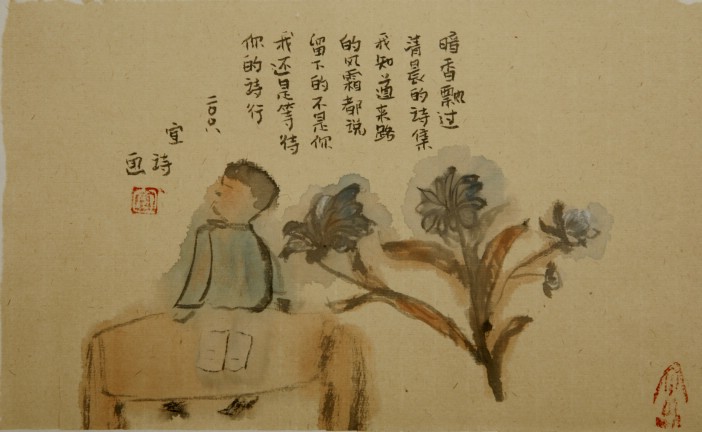 暗香飘过
清晨的詩集
我知道来路
的风霜都说
留下的不是你
我还是等待
你的詩行
二00八
宣詩
画